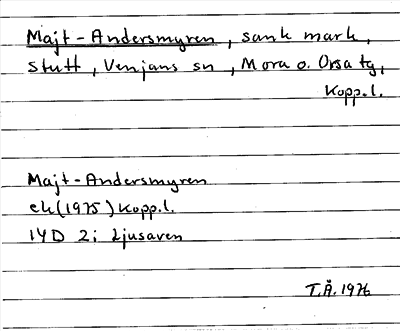 Majt-Andersmyren, sank mark,
Stutt, Venjans sn, Mora o. Orsa tg,
Kopp.l.
Majt-Andersmyren
ek (1975) Kopp.l.
14D 2i Ljusaven
T.Å. 1976